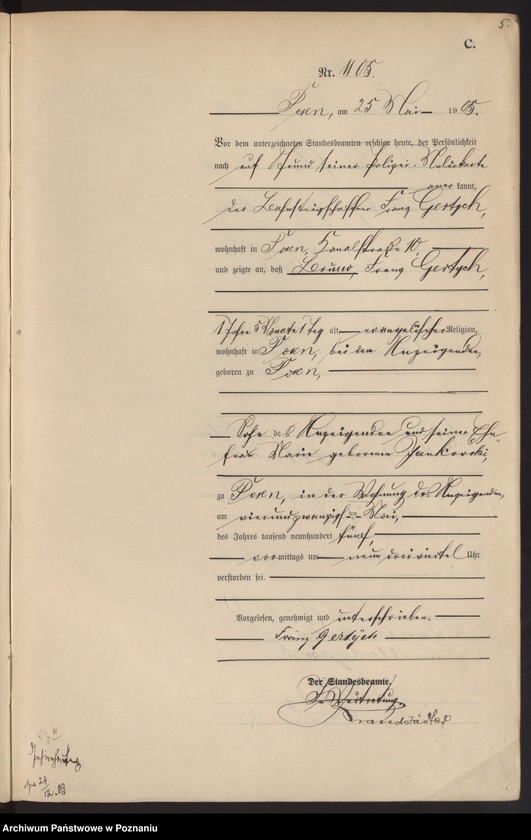 5.
C.
Nr. 1105.
Posen, am 25 Mai 1905.
Vor dem unterzeichneten Standesbeamten erschien heute, der Persönlichkeit
nach auf Grund seiner Polizei-Meldekarte
anerkannt,
der Franz Gertych,
wohnhaft in Posen, Kanalstraße 10,
und zeigte an, daß Bruno, Franz Gertych,
1 Jahr 5 Monate 1 Tag alt, evangelischer Religion,
wohnhaft in Posen, bei dem Anzeigenden,
geboren zu Posen,
Sohn des Anzeigenden und seiner Ehe-
frau Marie geborenen Jankowski,
zu Posen, in der Wohnung des Anzeigenden,
am vierundzwanzigsten Mai,
des Jahres tausend neunhundert fünf,
vormittags um neun dreiviertel Uhr
verstorben sei.
Vorgelesen, genehmigt und unterschrieben.
Franz Gertych
Der Standesbeamte.
In Vertretung.
Brandstädter
Archiwum Państwowe w Poznaniu